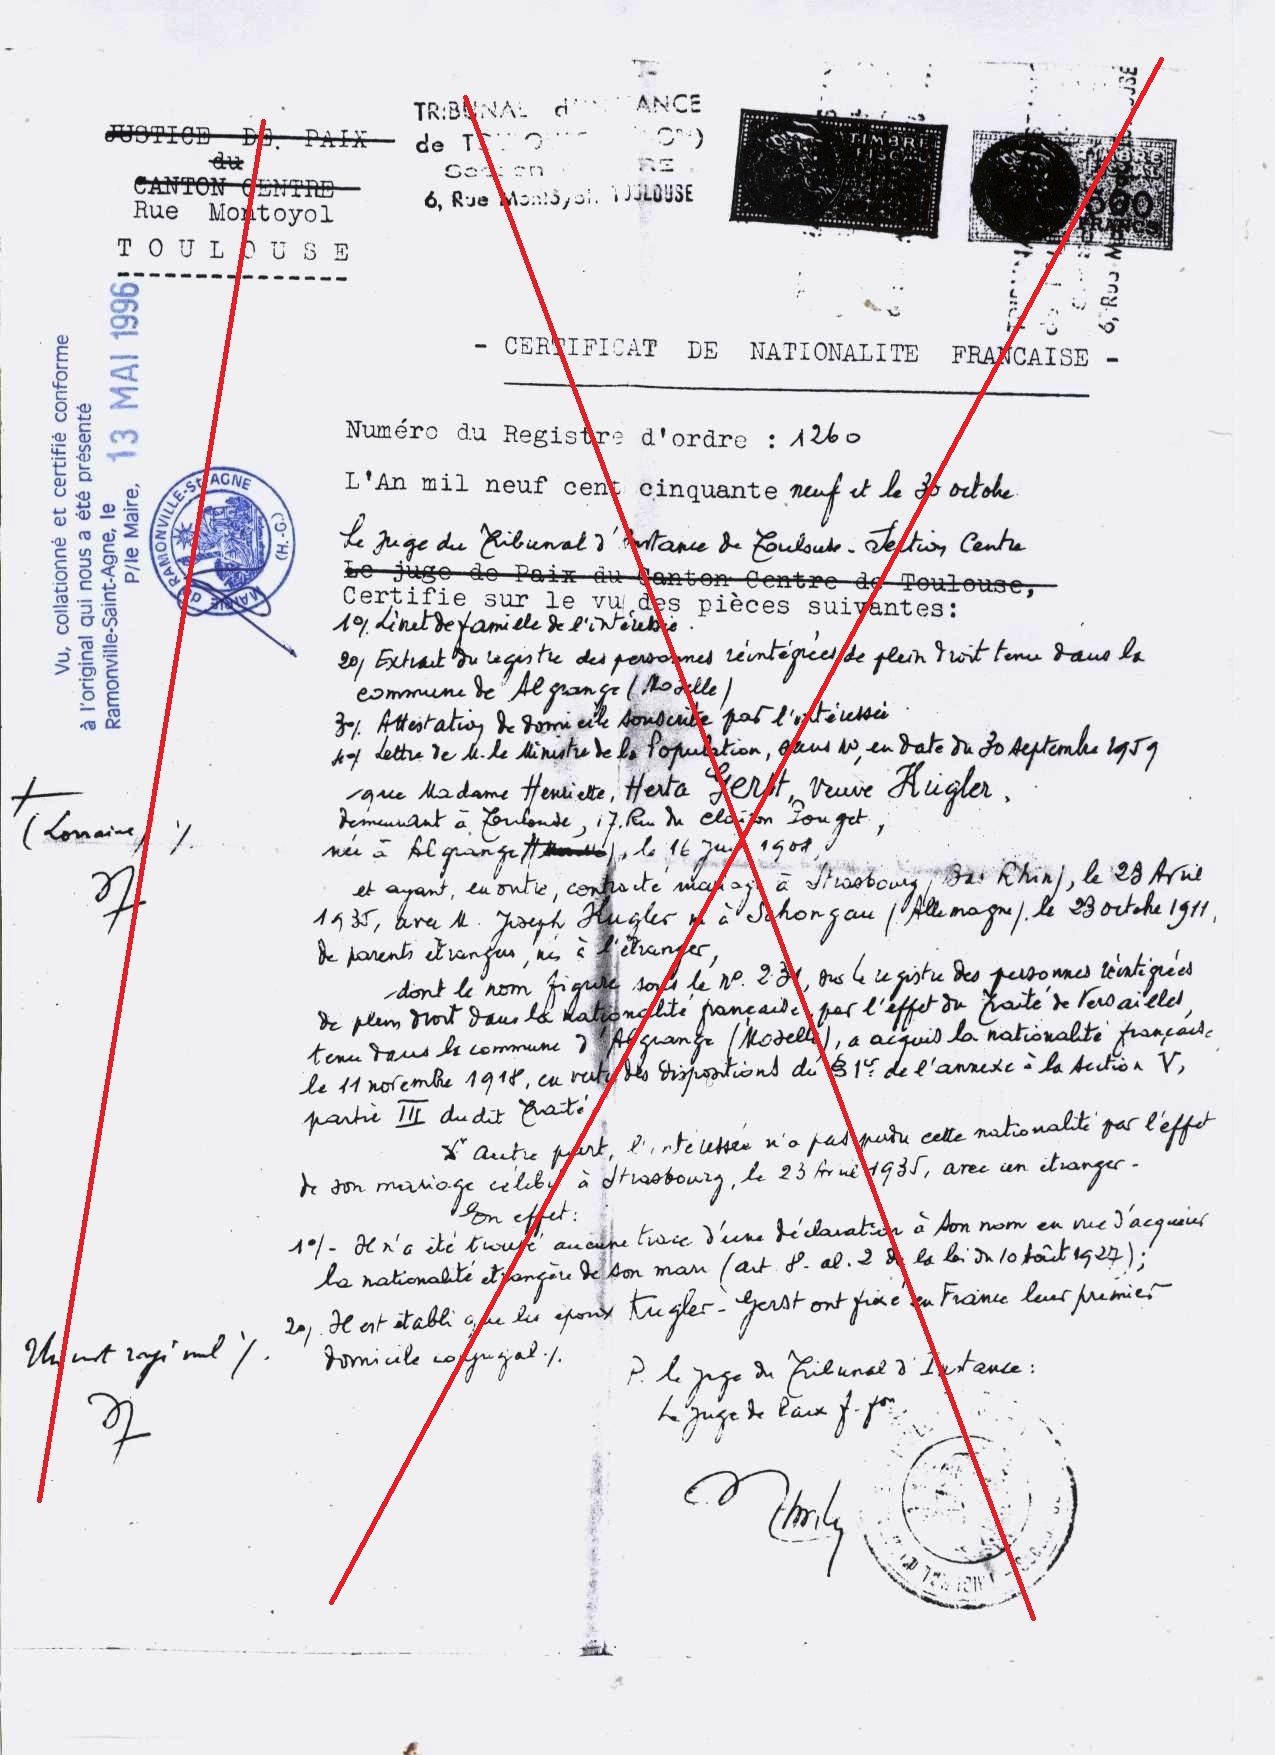 JUSTICE DE PAIX
du
CANTON CENTRE
Rue Montoyol
TOULOUSE
TRIBUNAL d' ANCE
de
6, Rue TOULOUSE
TIMBRE
FISCAL
500
FRANCS
6, Rue
Vu, collationné et certifié conforme
à l'original qui nous a été présenté
Ramonville-Saint-Agne, le 13 MAI 1996
P/le Maire,
MAIRIE de RAMONVILLE-St-AGNE (H.-G.)
- CERTIFICAT DE NATIONALITE FRANCAISE -
Numéro du Registre d'ordre : 1260
L'An mil neuf cent cinquante neuf et le 30 octobre
Le Juge du Tribunal d'Instance de Toulouse - Section Centre
Le juge de Paix du Canton Centre de Toulouse,
Certifie sur le vu des pièces suivantes:
1°/. Livret de famille de l'intéressée.
2°/ Extrait du registre des personnes réintégrées de plein droit tenu dans la
commune de Algrange (Moselle)
3°/. Attestation de domicile souscrite par l'intéressée
4°/ Lettre de M. le Ministre de la Population, sans N°, en date du 30 septembre 1959
que Madame Henriette, Herta Gerst, veuve Kugler,
demeurant à Toulouse, 17. Rue du
née à Algrange, le 16 1908,
et ayant, en outre, contracté mariage à Strasbourg (Bas Rhin), le 23 Avril
1935, avec M. Joseph Kugler né à Schongau (Allemagne), le 23 octobre 1911,
de parents étrangers, nés à l'étranger,
- dont le nom figure sous le n°. 231, sur le registre des personnes réintégrées
de plein droit dans la nationalité française, par l'effet du Traité de Versailles,
tenu dans la commune d'Algrange (Moselle), a acquis la nationalité française
le 11 novembre 1918, en vertu des dispositions du § 1er de l'annexe à la section V,
partie III du dit Traité
D'autre part, l'intéressée n'a pas perdu cette nationalité par l'effet
de son mariage célébré à Strasbourg, le 23 Avril 1935, avec un étranger -
En effet:
1°/- Il n'a été trouvé aucune trace d'une déclaration à son nom en vue d'acquérir
la nationalité étrangère de son mari (art 8. al. 2 de la loi du 10 Août 1927);
2°/. Il est établi que les époux Kugler-Gerst ont fixé en France leur premier
domicile conjugal ./.
(Lorraine) ./.
Un mot rayé nul ./.
P. le Juge du Tribunal d'Instance:
Le Juge de Paix f. fon.